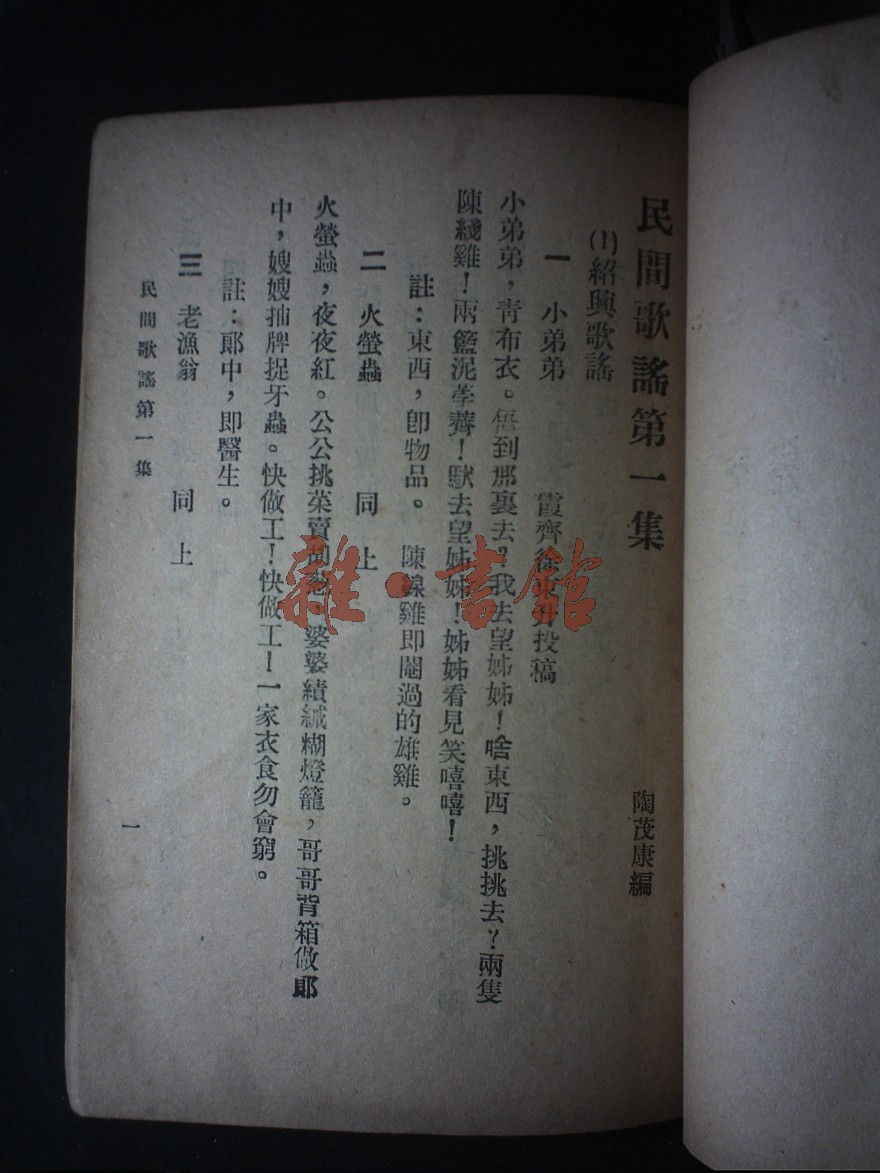 民間歌謠第一集
陶茂康編
(1)紹興歌謠
一 小弟弟
霞齊徐東升投稿
小弟弟，靑布衣。到那裏去？我去望姊姊！啥東西，挑挑去？兩隻
陳綫雞！兩籃泥荸薺！馱去望姊姊！姊姊看見笑嘻嘻！
註：東西，卽物品。 陳線雞即閹過的雄雞。
二 火螢蟲 同上
火螢蟲，夜夜紅。公公挑菜賣，婆婆績緎糊燈籠，哥哥背箱做郎
中，嫂嫂抽牌捉牙蟲。快做工！快做工！一家衣食勿會窮。
註：郎中，即醫生。
三 老漁翁 同上
民間歌謠第一集
一
雜·書館